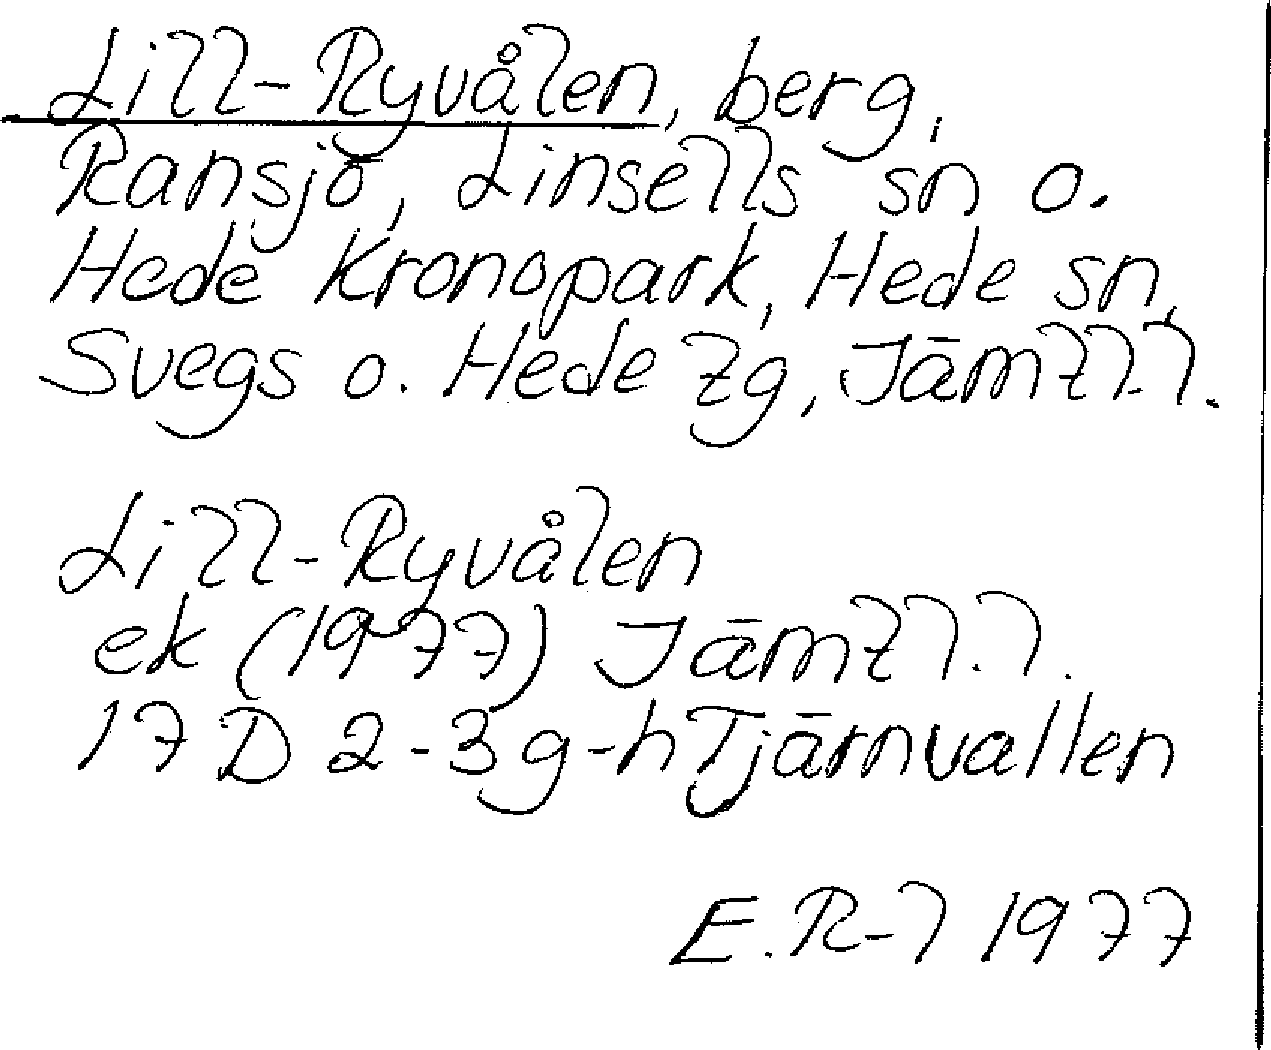 Lill-Ryvålen, berg,
Ransjö, Linsells sn o.
Hede Kronopark, Hede sn,
Svegs o. Hede tg, Jämtl.l.
Lill-Ryvålen
ek (1977) Jämtl.l.
17 D 2-3 g-h Tjärnvallen
E.R-l 1977